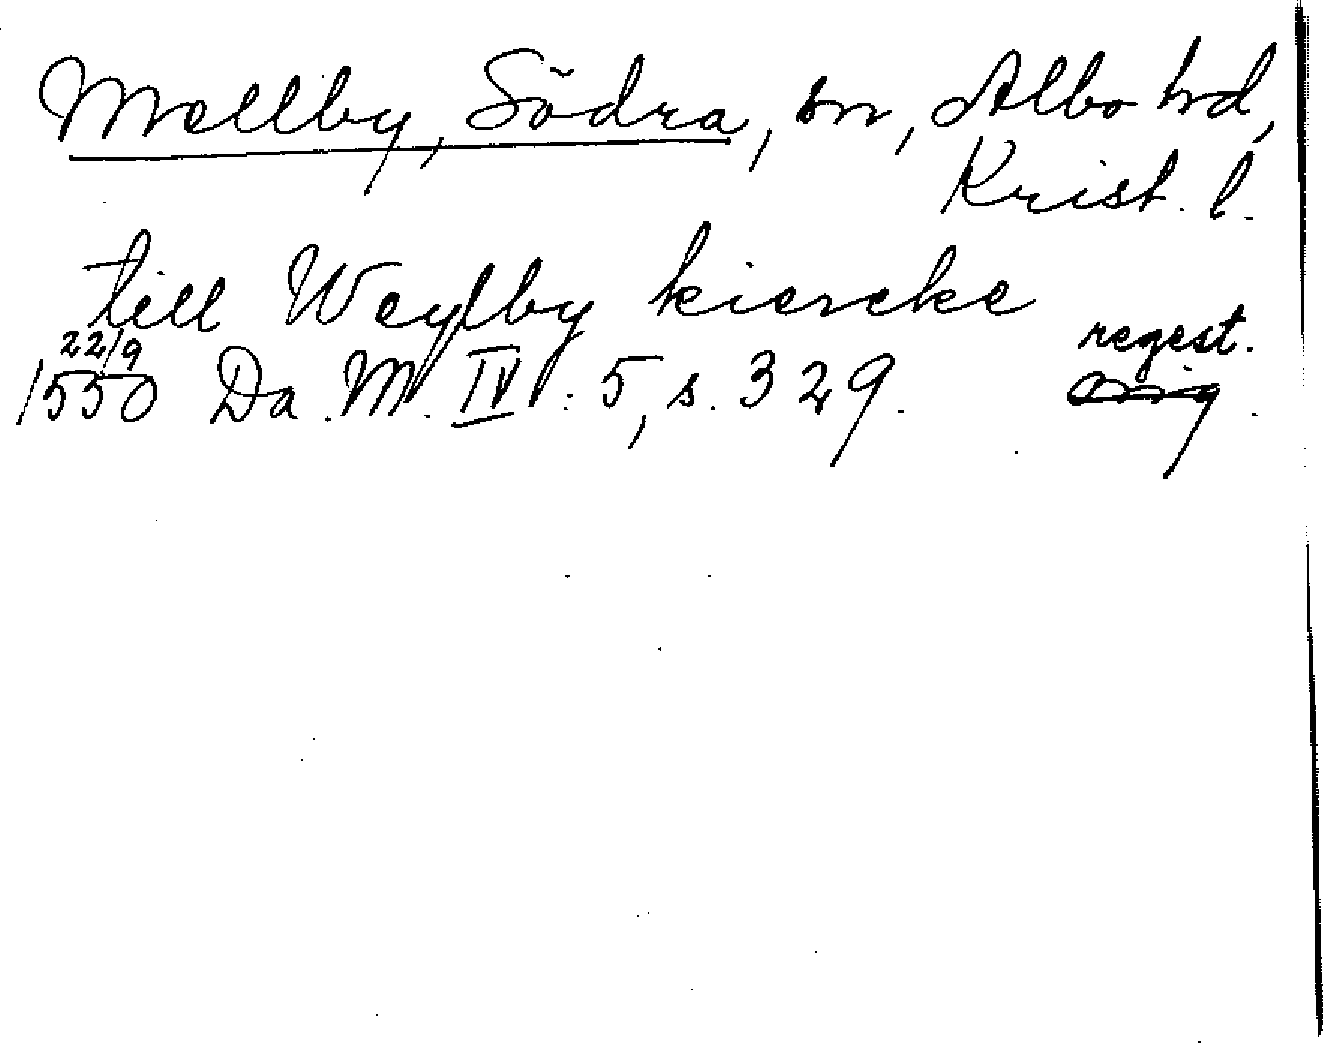 Mellby, Södra, sn, Albo hd,
Krist. l.
till Weylby kiercke
22/9 regest.
1550 Da. M. IV: 5, s. 329. orig.